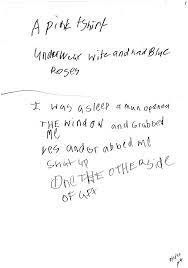 A pink tshirt
underwear wite and had Blue
Roses
I was asleep a man opened
THE window and Grabbed
Me
yes and Grabbed me
shut up
One THE OTHER side
OF